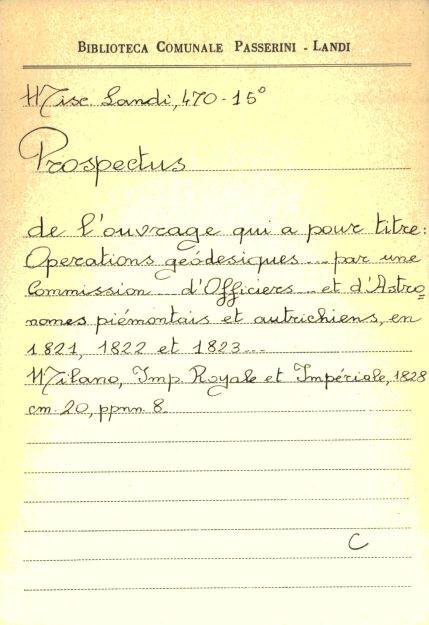 BIBLIOTECA COMUNALE PASSERINI - LANDI
Misc. Landi, 470-15°
Prospectus
de l'ouvrage qui a pour titre:
Operations geodesiques ... par une
Commission ... d'Officiers ... et d'Astro=
nomes piémontais et autrichiens, en
1821, 1822 et 1823 ...
Milano, Imp. Royale et Impériale, 1828
cm. 20, ppnn. 8.
C